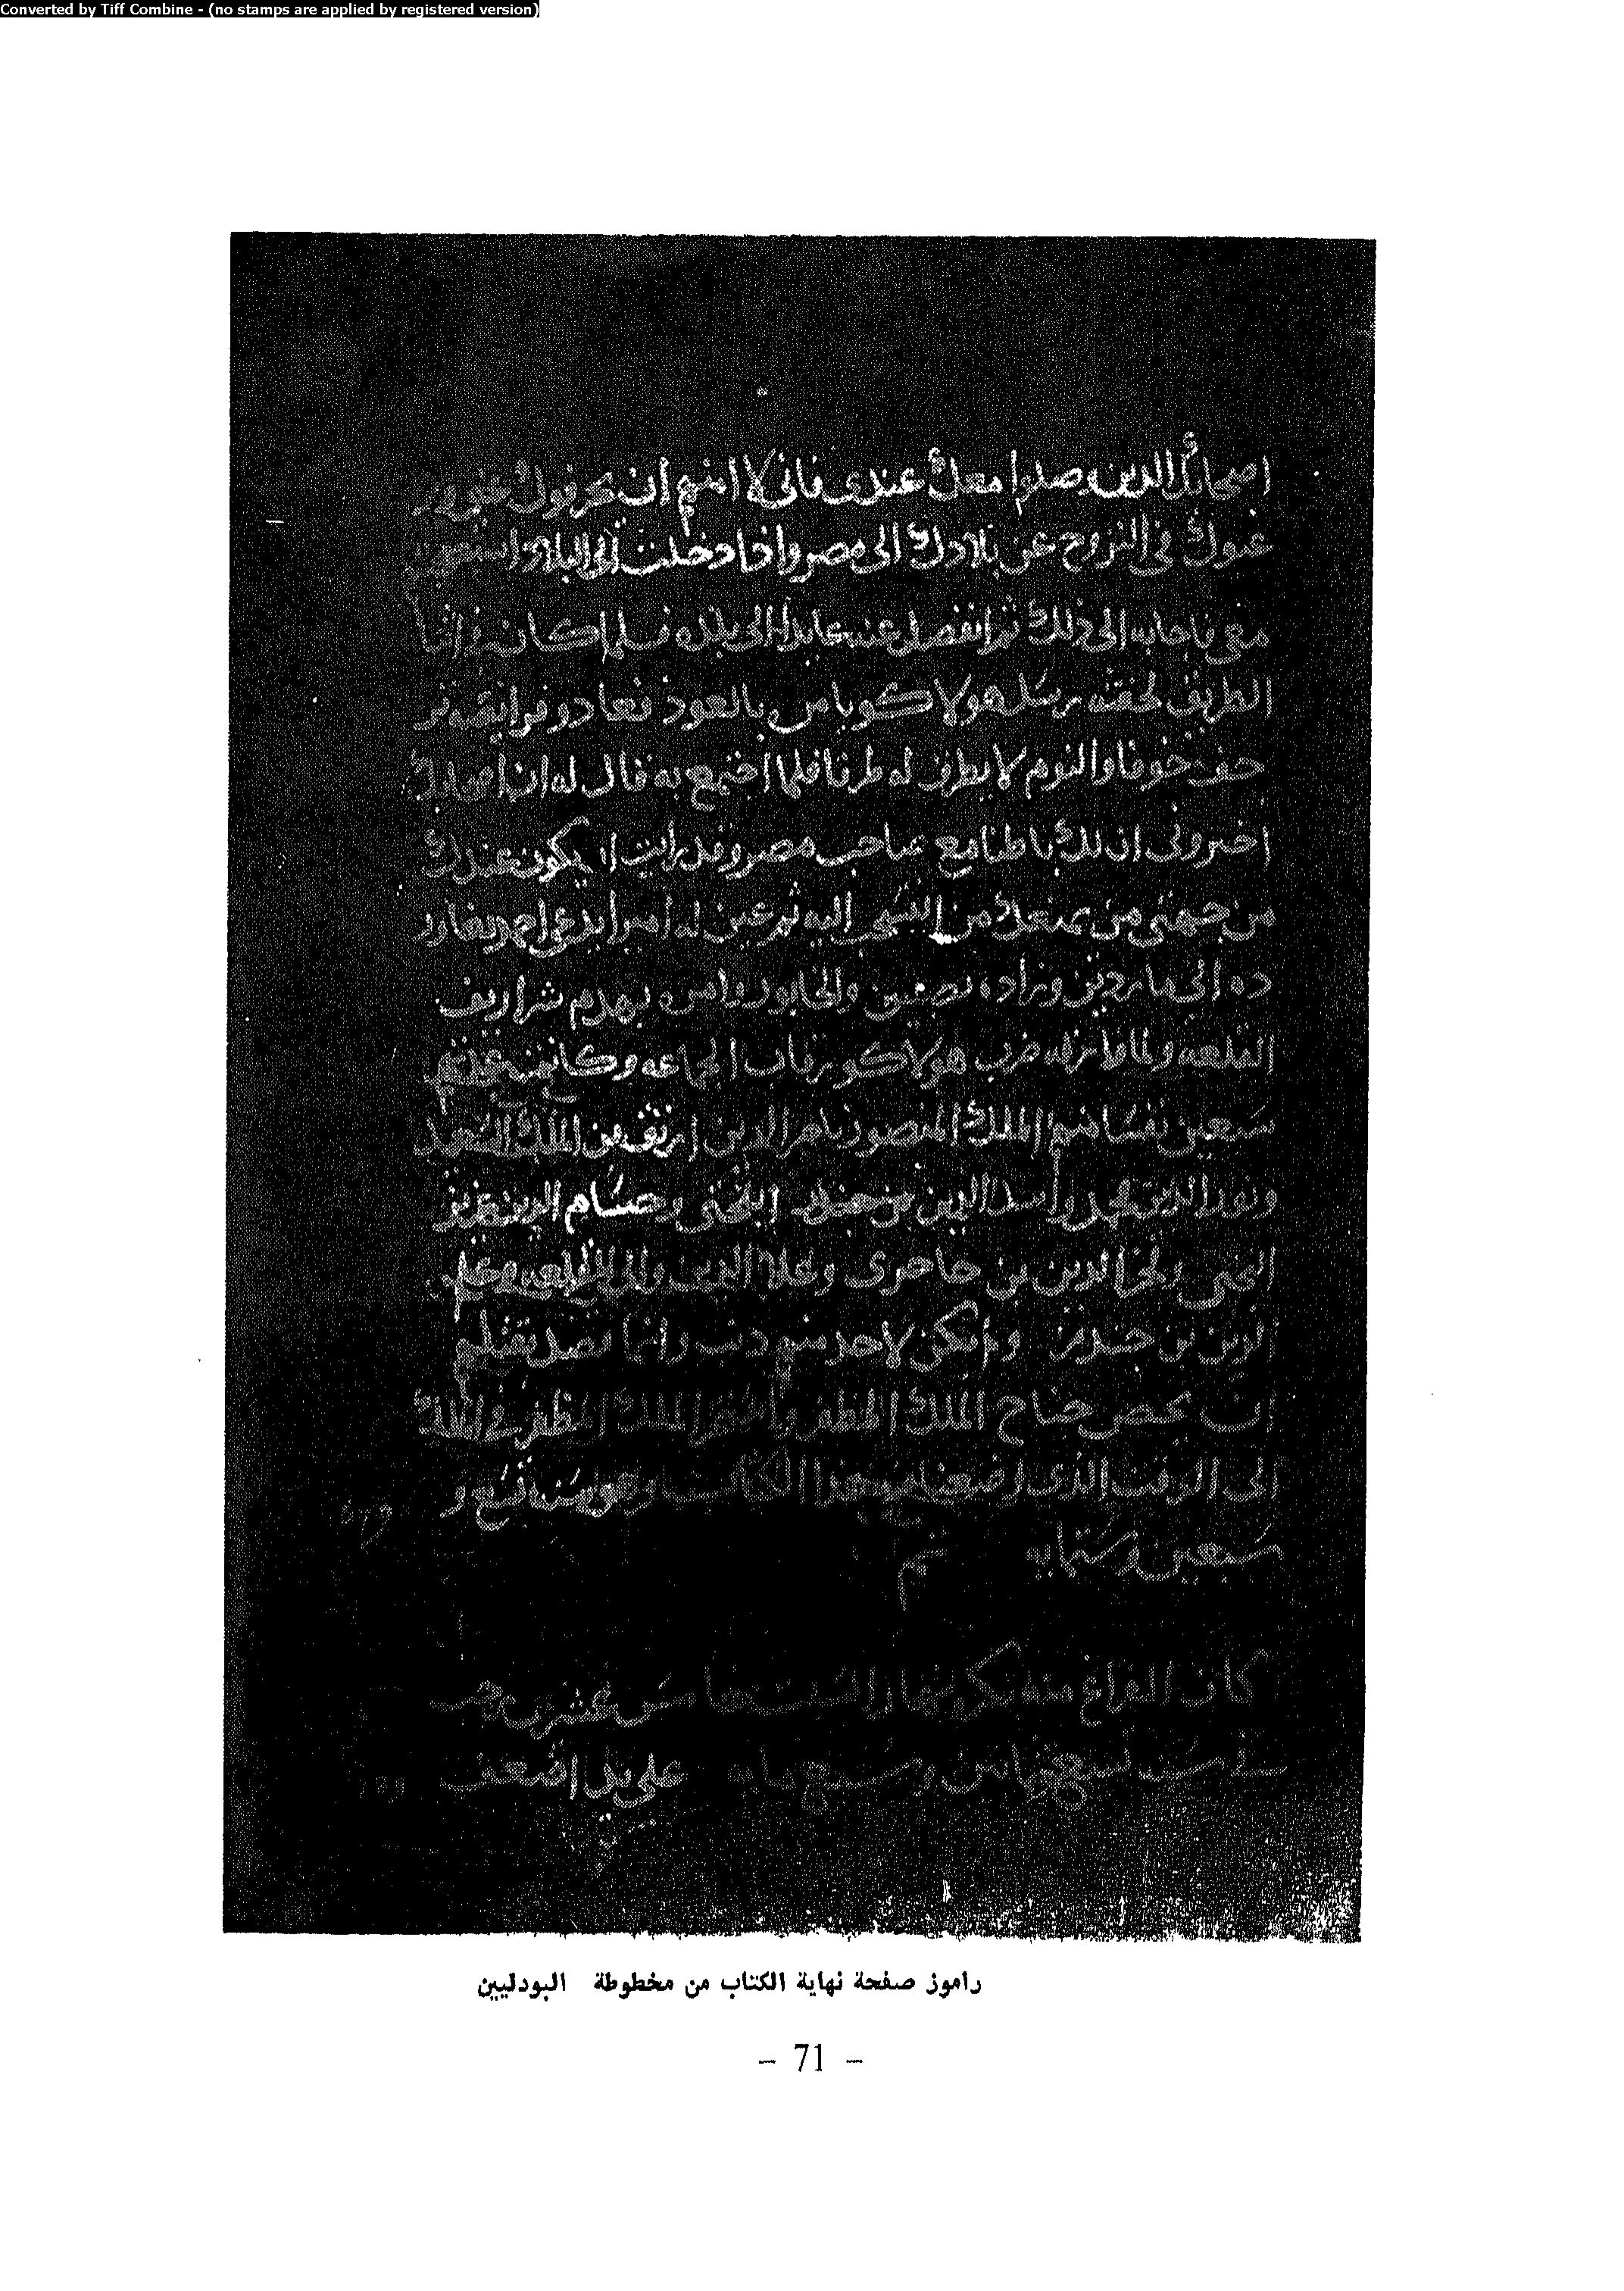 Converted by Tiff Combine - (no stamps are applied by registered version)
اصحابك الذين وصلوا معك عندي فاني لا امنهم ان يحرفوك عني و
في النزوح عن بلادك الى مصر واذا دخلت الى البلاد
معي فاجابه الى ذلك ثم انفصل عنه عايدا الى بلده فلما كان في اثنا
الطريق لحقته رسل هولاكو يامره بالعود فعاد وفرايصه تر
خوفا والنوم لا يطرق له طرفا فلما اجتمع به قال له ان اصحابك
اخبروني ان لك باطنا مع صاحب مصر وقد رايت ان يكون عندك
من جهتي من يمنعك من التسحب اليه ثم عين له اميرا يدعى احمد بغا و
ده الى ماردين وزاده نصيبين والخابور وامره بهدم شراريف
القلعه ولما فارقه ضرب هولاكو رقاب الجماعه وكانت عدتهم
سبعين نفسا منهم الملك المنصور ناصر الدين ارتق بن الملك السعيد
ونور الدين محمد واسد الدين بن وحسام الدين عزيز
وفخر الدين بن حاجري وعلا الدين والي القلعه وعلم
الدين بن جندر ولم يكن لاحد منهم ذنب وانما قصد بقتلهم
ان يحص جناح الملك المظفر واستمر الملك المظفر في الملك
الى الوقت الذي وضعنا فيه هذا الكتاب وهو سنة تسع و
سبعين وستمايه تم
كان الفراغ منه بكرة نهار السبت خامس عشرين رجب
سنة تسع وسبع مايه على يد اضعف
راموز صفحة نهاية الكتاب من مخطوطة البودليين
- 71 -